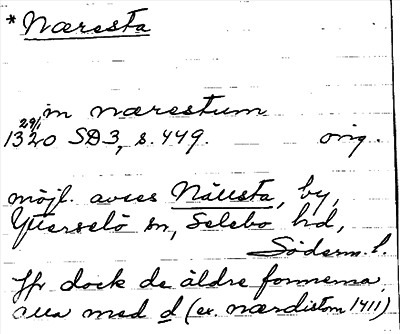 * Næresta
in nærestum
29/1
1320 SD3, s. 449. orig.
möjl. avses Nälsta, by,
Ytterselö sn, Selebo hd,
Söderm. l.
Jfr dock de äldre formerna,
alla med d (ex. nærdistom 1411)